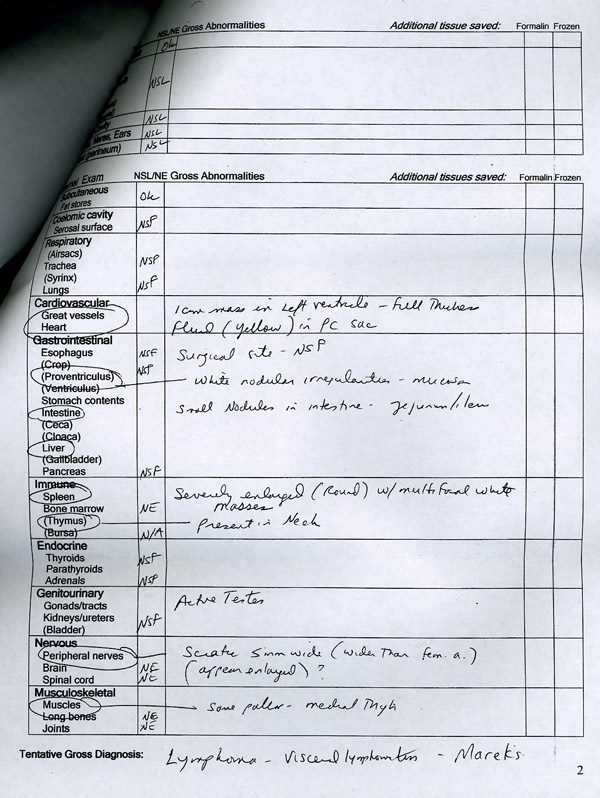 NSL/NE Gross Abnormalities Additional tissue saved: Formalin Frozen
Ok
NSL
NSL
Nares, Ears NSL
(perineum) NSL
Exam NSL/NE Gross Abnormalities Additional tissues saved: Formalin Frozen
Subcutaneous
Fat stores Ok
Coelomic cavity
Serosal surface NSF
Respiratory
(Airsacs)
Trachea NSF
(Syrinx)
Lungs NSF
Cardiovascular 1cm mass in Left ventricle - Full Thickness
Great vessels
Heart Fluid (yellow) in PC sac
Gastrointestinal
Esophagus NSF Surgical site - NSF
(Crop) NSF
(Proventriculus) White nodular irregularities - mucosa
(Ventriculus)
Stomach contents
Intestine Small Nodules in intestine - jejunum/ileum
(Ceca)
(Cloaca)
Liver
(Gallbladder)
Pancreas NSF
Immune
Spleen Severely enlarged (Round) w/ multifocal white
masses
Bone marrow NE
(Thymus) Present in Neck
(Bursa) N/A
Endocrine
Thyroids NSF
Parathyroids
Adrenals NSF
Genitourinary
Gonads/tracts Active Testes
Kidneys/ureters NSF
(Bladder)
Nervous
Peripheral nerves Sciatic 5mm wide (wider than fem. a.)
Brain NE (appear enlarged) ?
Spinal cord NE
Musculoskeletal
Muscles Some pallor - medial Thigh
Long bones NE
Joints NE
Tentative Gross Diagnosis: Lymphoma - Visceral lymphomatosis - Marek's
2